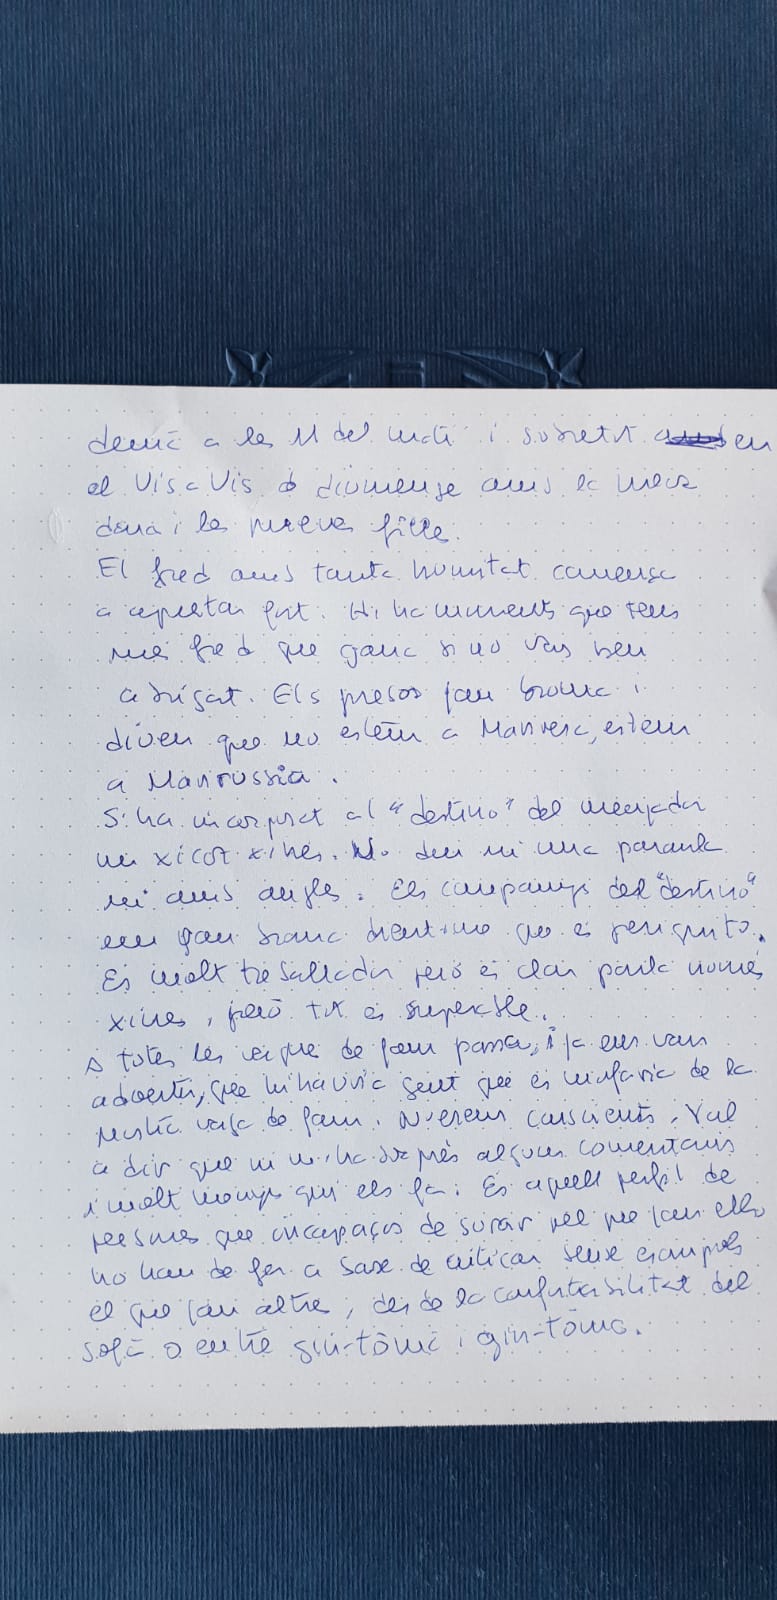 demà a les 11 del matí i sobretot en
el Vis a Vis de diumenge amb la meva
dona i les meves filles.
El fred amb tanta humitat comença
a apretar fort. Hi ha moments que tens
més fred que gana si no vas ben
abrigat. Els presos fan broma i
diuen que no estem a Manresa, estem
a Manrussia.
S'ha incorporat al "destino" del menjador
un xicot xinès. No diu ni una paraula
ni amb anglès. Els companys del "destino"
em fan broma dient-me que és periquito.
És molt treballador però és clar parla només
xinès, però tot és superable.
A totes les vagues de fam passa, i ja ens van
advertir, que hi hauria gent que es mofaria de la
nostra vaga de fam. N'erem conscients. Val
a dir que ni m'ha sorprès alguns comentaris
i molt menys qui els fa. És aquell perfil de
persones que incapaços de surar pel que fan ells
ho han de fer a base de criticar sense escrúpols
el que fan altres, des de la confortabilitat del
sofà o entre gin-tònic i gin-tònic.